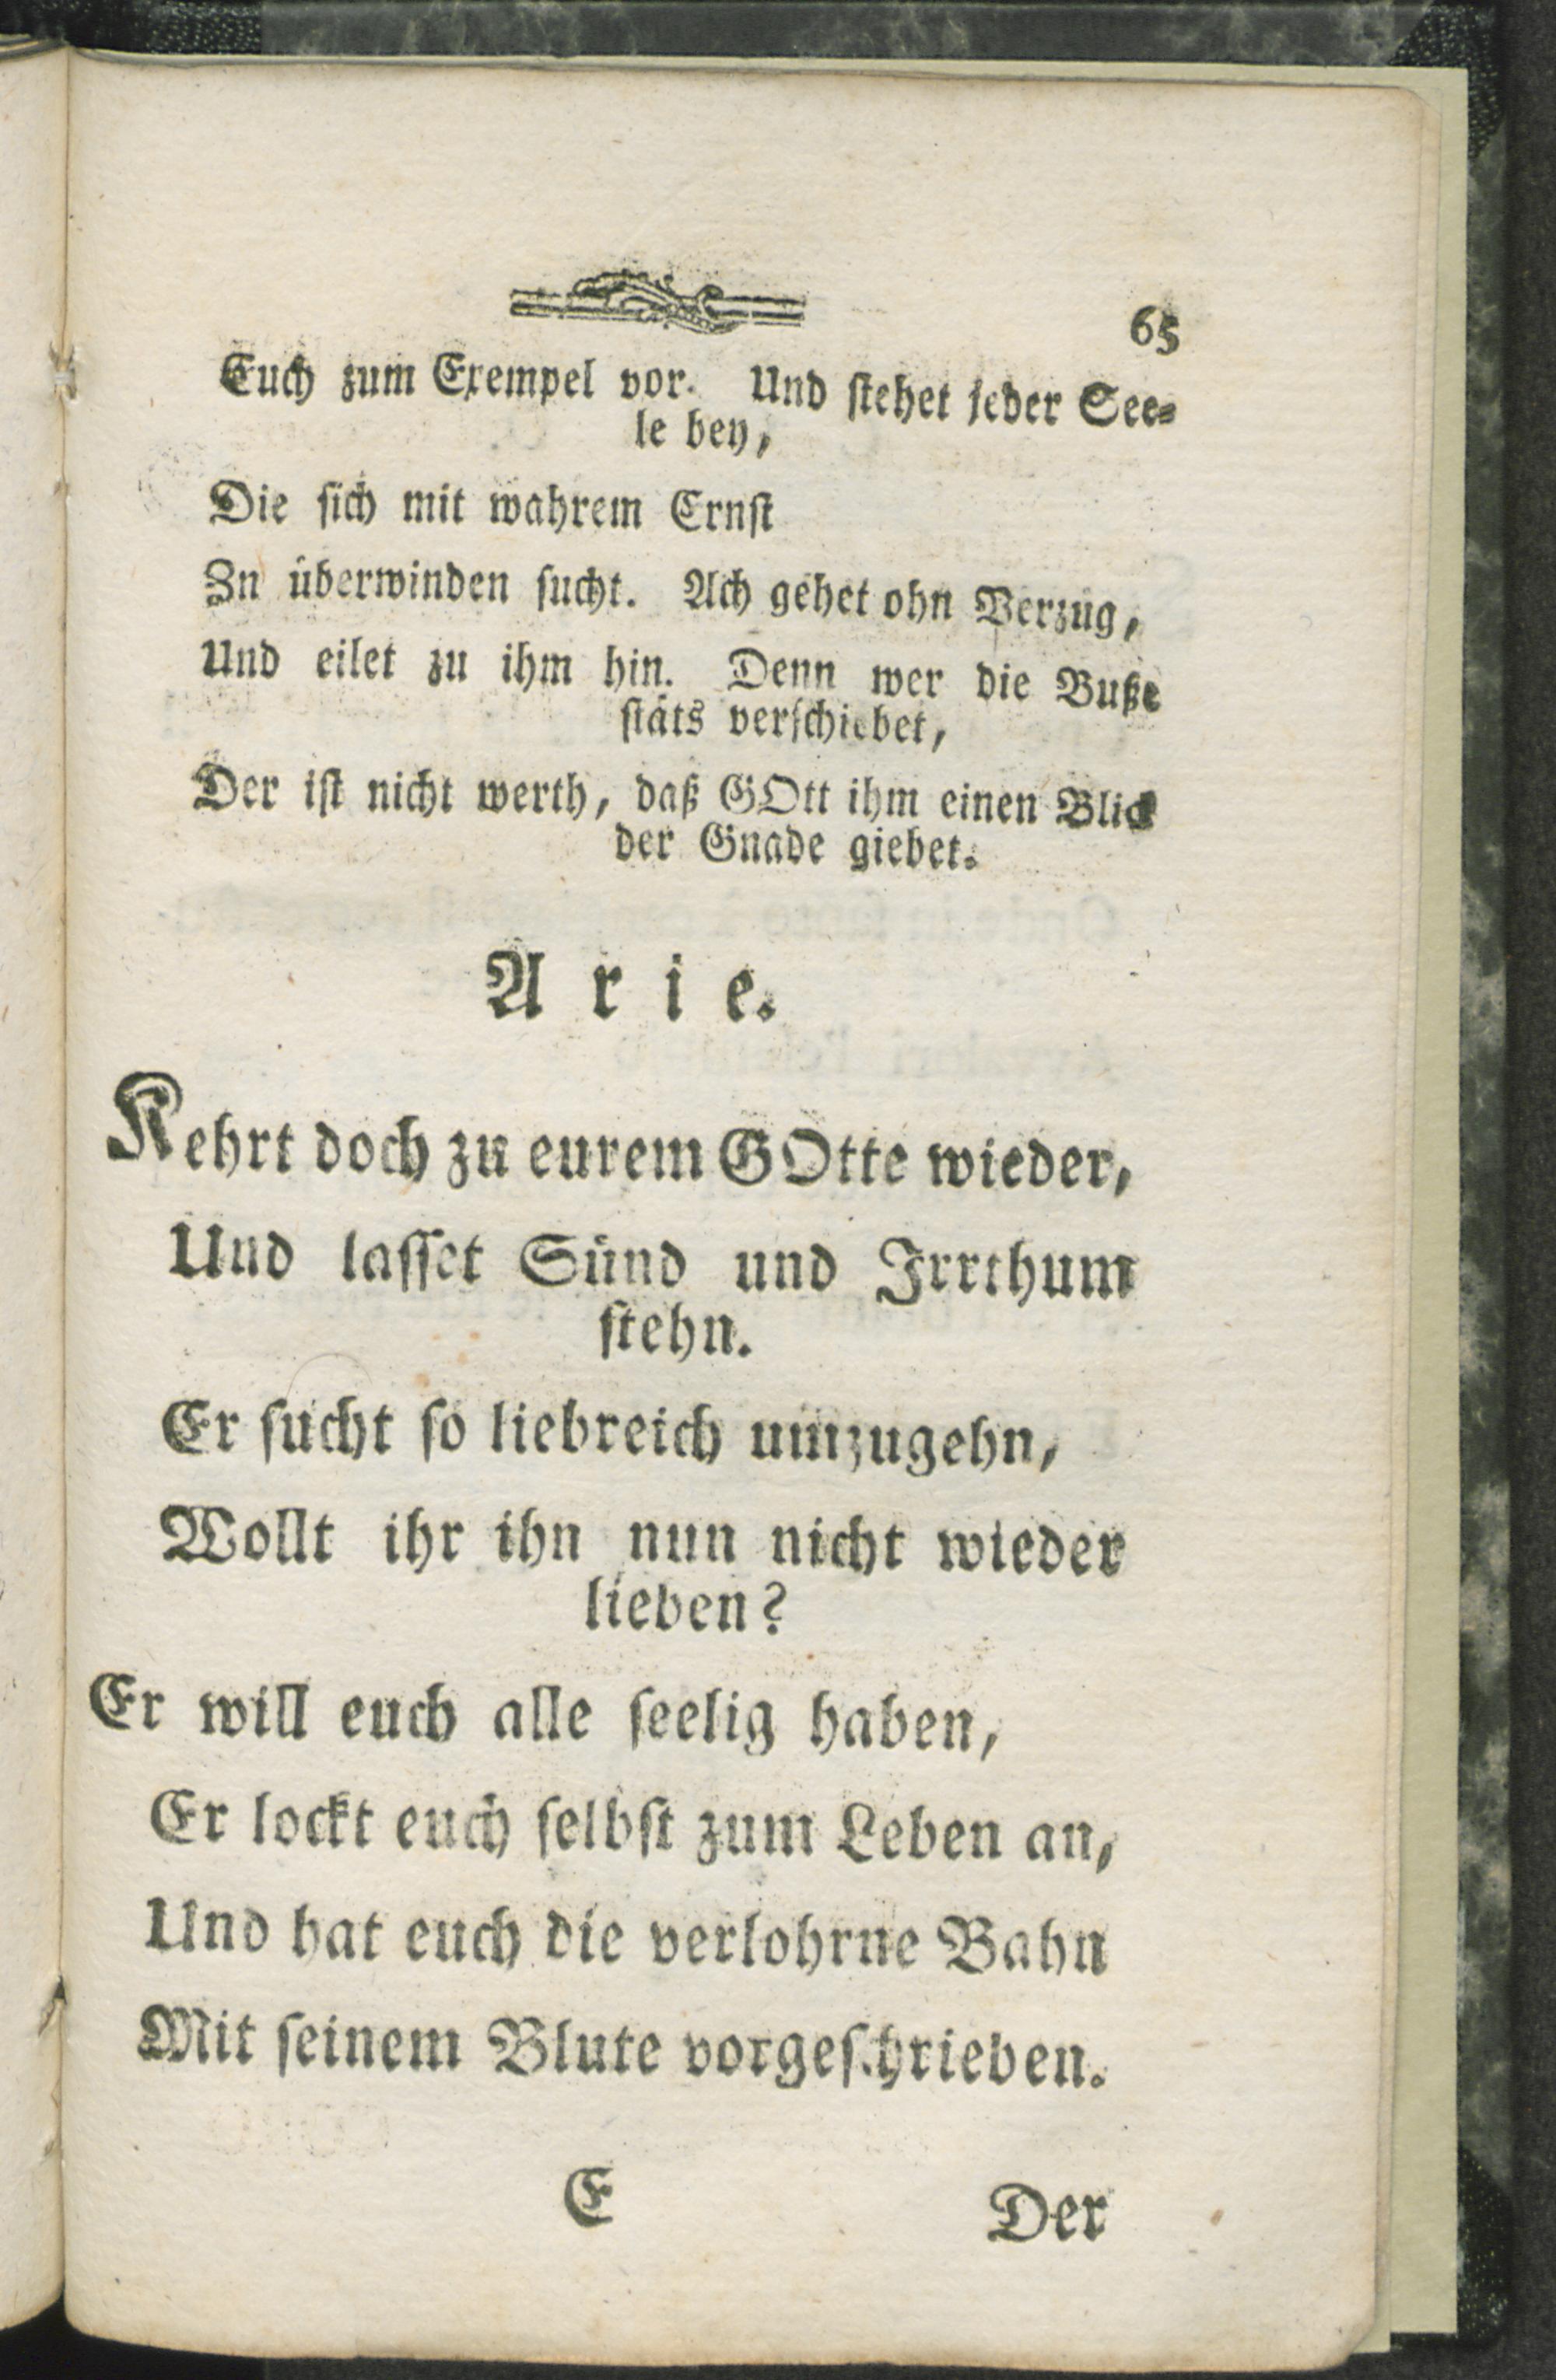 65
Euch zum Exempel vor. Und ſtehet jeder See-
le bey,
Die ſich mit wahrem Ernſt
Zn überwinden ſucht. Ach gehet ohn Verzug,
Und eilet zu ihm hin. Denn wer die Buße
ſtäts verſchiebet,
Der iſt nicht werth, daß GOtt ihm einen Blick
der Gnade giebet.
Arie.
Kehrt doch zu eurem GOtte wieder,
Und laſſet Sünd und Irrthum
ſtehn.
Er ſucht ſo liebreich umzugehn,
Wollt ihr ihn nun nicht wieder
lieben?
Er will euch alle ſeelig haben,
Er lockt euch ſelbſt zum Leben an,
Und hat euch die verlohrne Bahn
Mit ſeinem Blute vorgeſchrieben.
E
Der